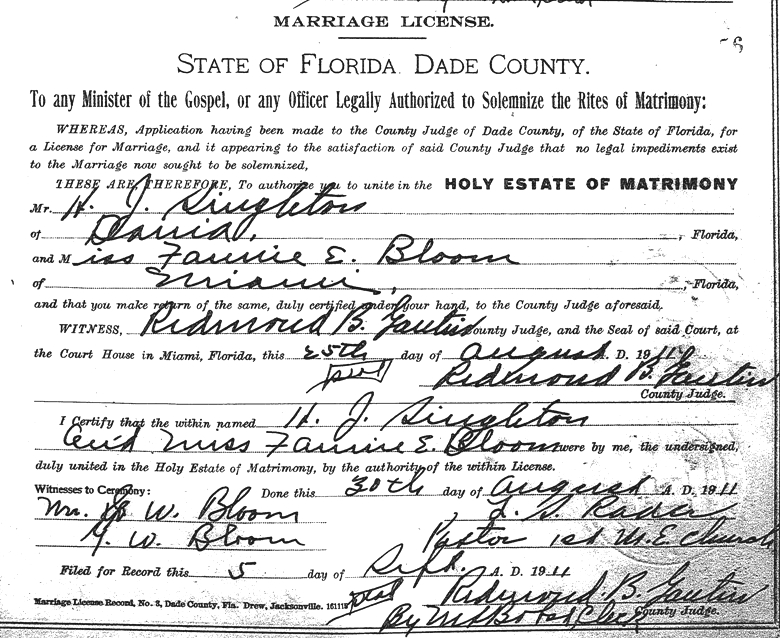 MARRIAGE LICENSE.
STATE OF FLORIDA DADE COUNTY.
To any Minister of the Gospel, or any Officer Legally Authorized to Solemnize the Rites of Matrimony:
WHEREAS, Application having been made to the County Judge of Dade County, of the State of Florida, for
a License for Marriage, and it appearing to the satisfaction of said County Judge that no legal impediments exist
to the Marriage now sought to be solemnized,
THESE ARE, THEREFORE, To authorize you to unite in the HOLY ESTATE OF MATRIMONY
Mr. H. J. Singleton
of Dania, , Florida,
and Miss Fannie E. Bloom
of Miami, , Florida,
and that you make return of the same, duly certified under your hand, to the County Judge aforesaid.
WITNESS, Redmond B. Gautier County Judge, and the Seal of said Court, at
the Court House in Miami, Florida, this 25th day of August A. D. 1911
seal Redmond B. Gautier
County Judge.
I Certify that the within named H. J. Singleton
and Miss Fannie E. Bloom were by me, the undersigned,
duly united in the Holy Estate of Matrimony, by the authority of the within License.
Witnesses to Ceremony: Done this 30th day of August A. D. 1911
Mr. W. Bloom Rader
W. Bloom Pastor 1st M.E. Church
Filed for Record this 5 day of Sept. A. D. 1911
seal Redmond B. Gautier
Marriage License Record, No. 3, Dade County, Fla. Drew, Jacksonville. County Judge.
By